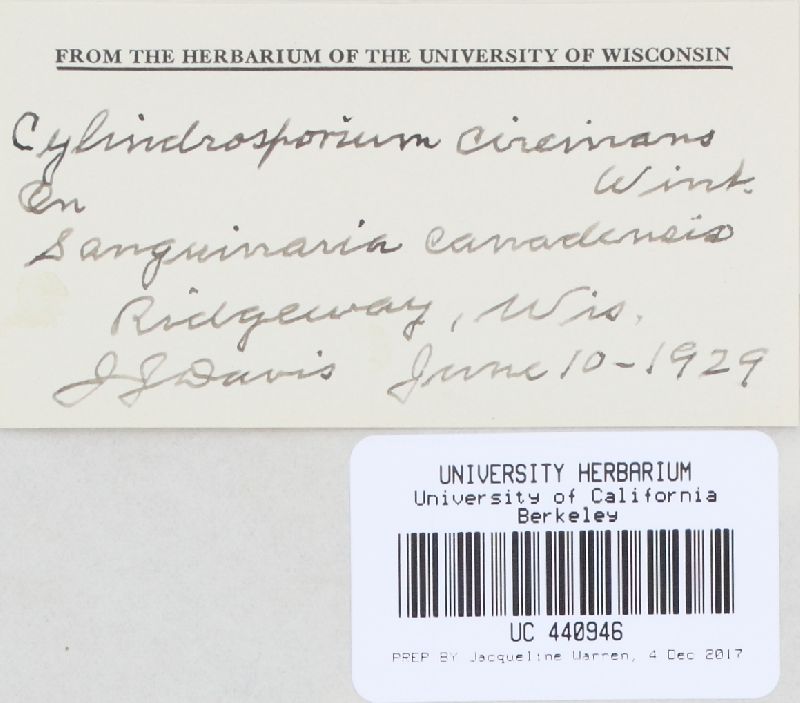 FROM THE HERBARIUM OF THE UNIVERSITY OF WISCONSIN
Cylindrosporium circinans
Wint.
On
Sanguinaria canadensis
Ridgeway, Wis.
JJ Davis June 10-1929
UNIVERSITY HERBARIUM
University of California
Berkeley
UC 440946
PREP BY Jacqueline Warren, 4 Dec 2017